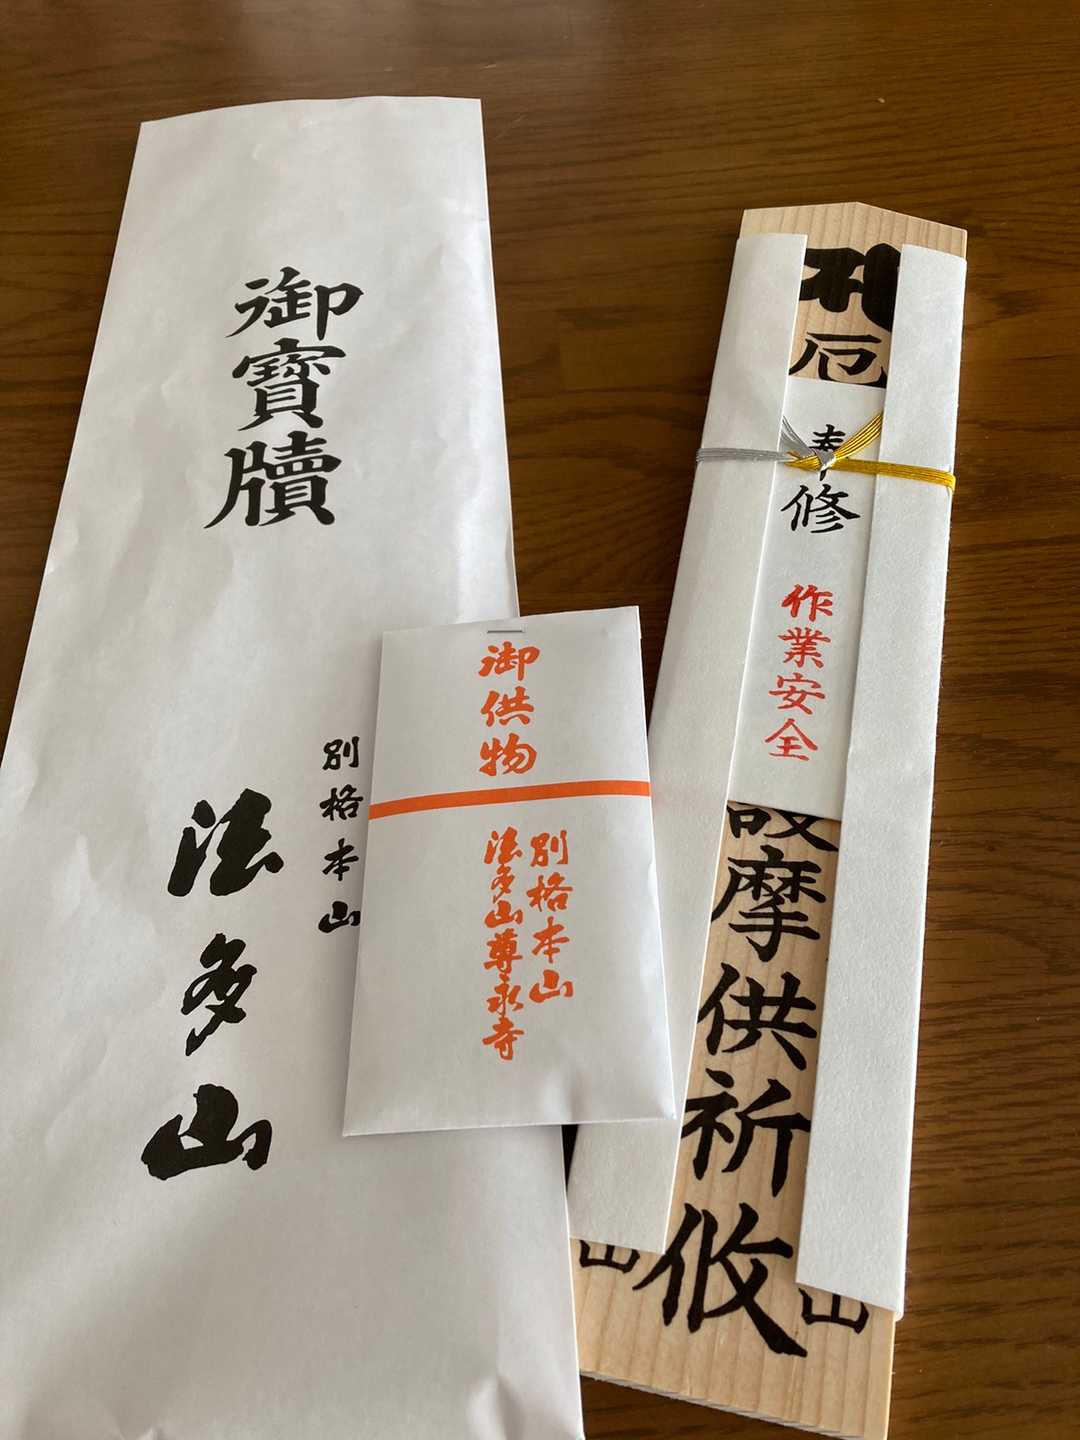 御寶牘
別格本山
法多山
御供物
別格本山
法多山尊永寺
厄
奉修
作業安全
護摩供祈攸
山
山